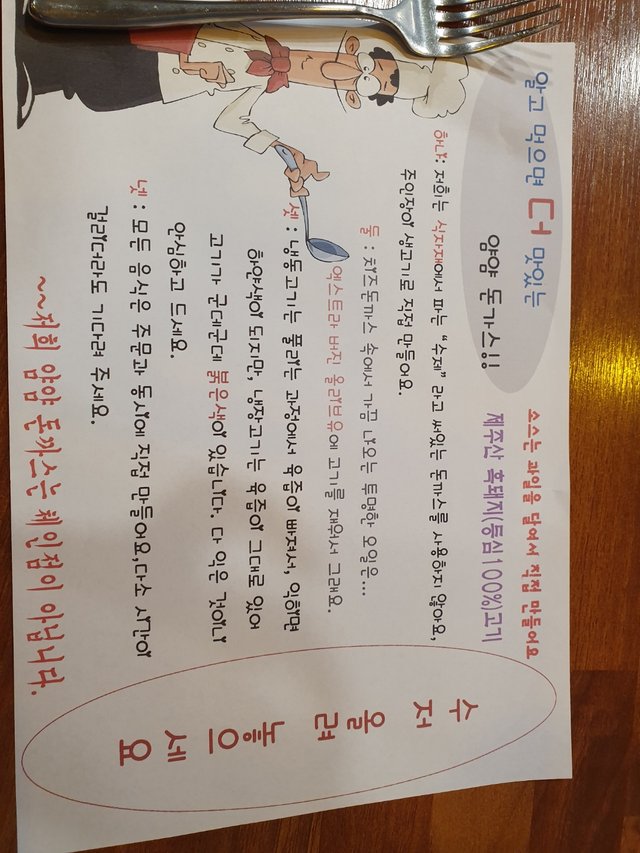 알고 먹으면 더 맛있는
얌얌 돈가스!!
소스는 과일을 달여서 직접 만들어요
제주산 흑돼지(등심100%)고기
하나: 저희는 식자재에서 파는 "수제" 라고 써있는 돈까스를 사용하지 않아요,
주인장이 생고기로 직접 만들어요.
둘 : 치즈돈까스 속에서 가끔 나오는 투명한 오일은...
엑스트라 버진 올리브유에 고기를 재워서 그래요.
셋 : 냉동고기는 풀리는 과정에서 육즙이 빠져서, 익히면
하얀색이 되지만, 냉장고기는 육즙이 그대로 있어
고기가 군데군데 붉은색이 있습니다. 다 익은 것이니
안심하고 드세요.
넷 : 모든 음식은 주문과 동시에 직접 만들어요,다소 시간이
걸리더라도 기다려 주세요.
~~저희 얌얌 돈까스는 체인점이 아닙니다.
수저 올려 놓으세요